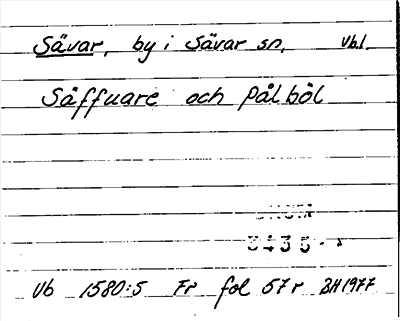 Sävar, by i Sävar sn, Vbl.
Såffuare och Pålböl
3435
Vb 1580:5 Fr fol 57r BH1977